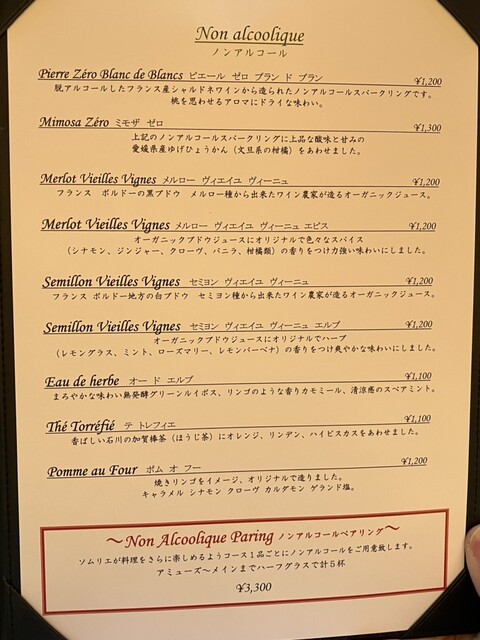 Non alcoolique
ノンアルコール
Pierre Zéro Blanc de Blancs ピエール ゼロ ブラン ド ブラン ¥1,200
脱アルコールしたフランス産シャルドネワインから造られたノンアルコールスパークリングです。
桃を思わせるアロマにドライな味わい。
Mimosa Zéro ミモザ ゼロ ¥1,300
上記のノンアルコールスパークリングに上品な酸味と甘みの
愛媛県産ゆげひょうかん（文旦系の柑橘）をあわせました。
Merlot Vieilles Vignes メルロー ヴィエイユ ヴィーニュ ¥1,200
フランス ボルドーの黒ブドウ メルロー種から出来たワイン農家が造るオーガニックジュース。
Merlot Vieilles Vignes メルロー ヴィエイユ ヴィーニュ エピス ¥1,200
オーガニックブドウジュースにオリジナルで色々なスパイス
（シナモン、ジンジャー、クローヴ、バニラ、柑橘類）の香りをつけ力強い味わいにしました。
Semillon Vieilles Vignes セミヨン ヴィエイユ ヴィーニュ ¥1,200
フランス ボルドー地方の白ブドウ セミヨン種から出来たワイン農家が造るオーガニックジュース。
Semillon Vieilles Vignes セミヨン ヴィエイユ ヴィーニュ エルブ ¥1,200
オーガニックブドウジュースにオリジナルでハーブ
（レモングラス、ミント、ローズマリー、レモンバーベナ）の香りをつけ爽やかな味わいにしました。
Eau de herbe オー ド エルブ ¥1,100
まろやかな味わい無発酵グリーンルイボス、リンゴのような香りカモミール、清涼感のスペアミント。
Thé Torréfié テ トレフィエ ¥1,100
香ばしい石川の加賀棒茶（ほうじ茶）にオレンジ、リンデン、ハイビスカスをあわせました。
Pomme au Four ポム オ フー ¥1,200
焼きリンゴをイメージ、オリジナルで造りました。
キャラメル シナモン クローヴ カルダモン ゲランド塩。
～Non Alcoolique Paring ノンアルコールペアリング～
ソムリエが料理をさらに楽しめるようコース１品ごとにノンアルコールをご用意致します。
アミューズ～メインまでハーフグラスで計５杯
¥3,300